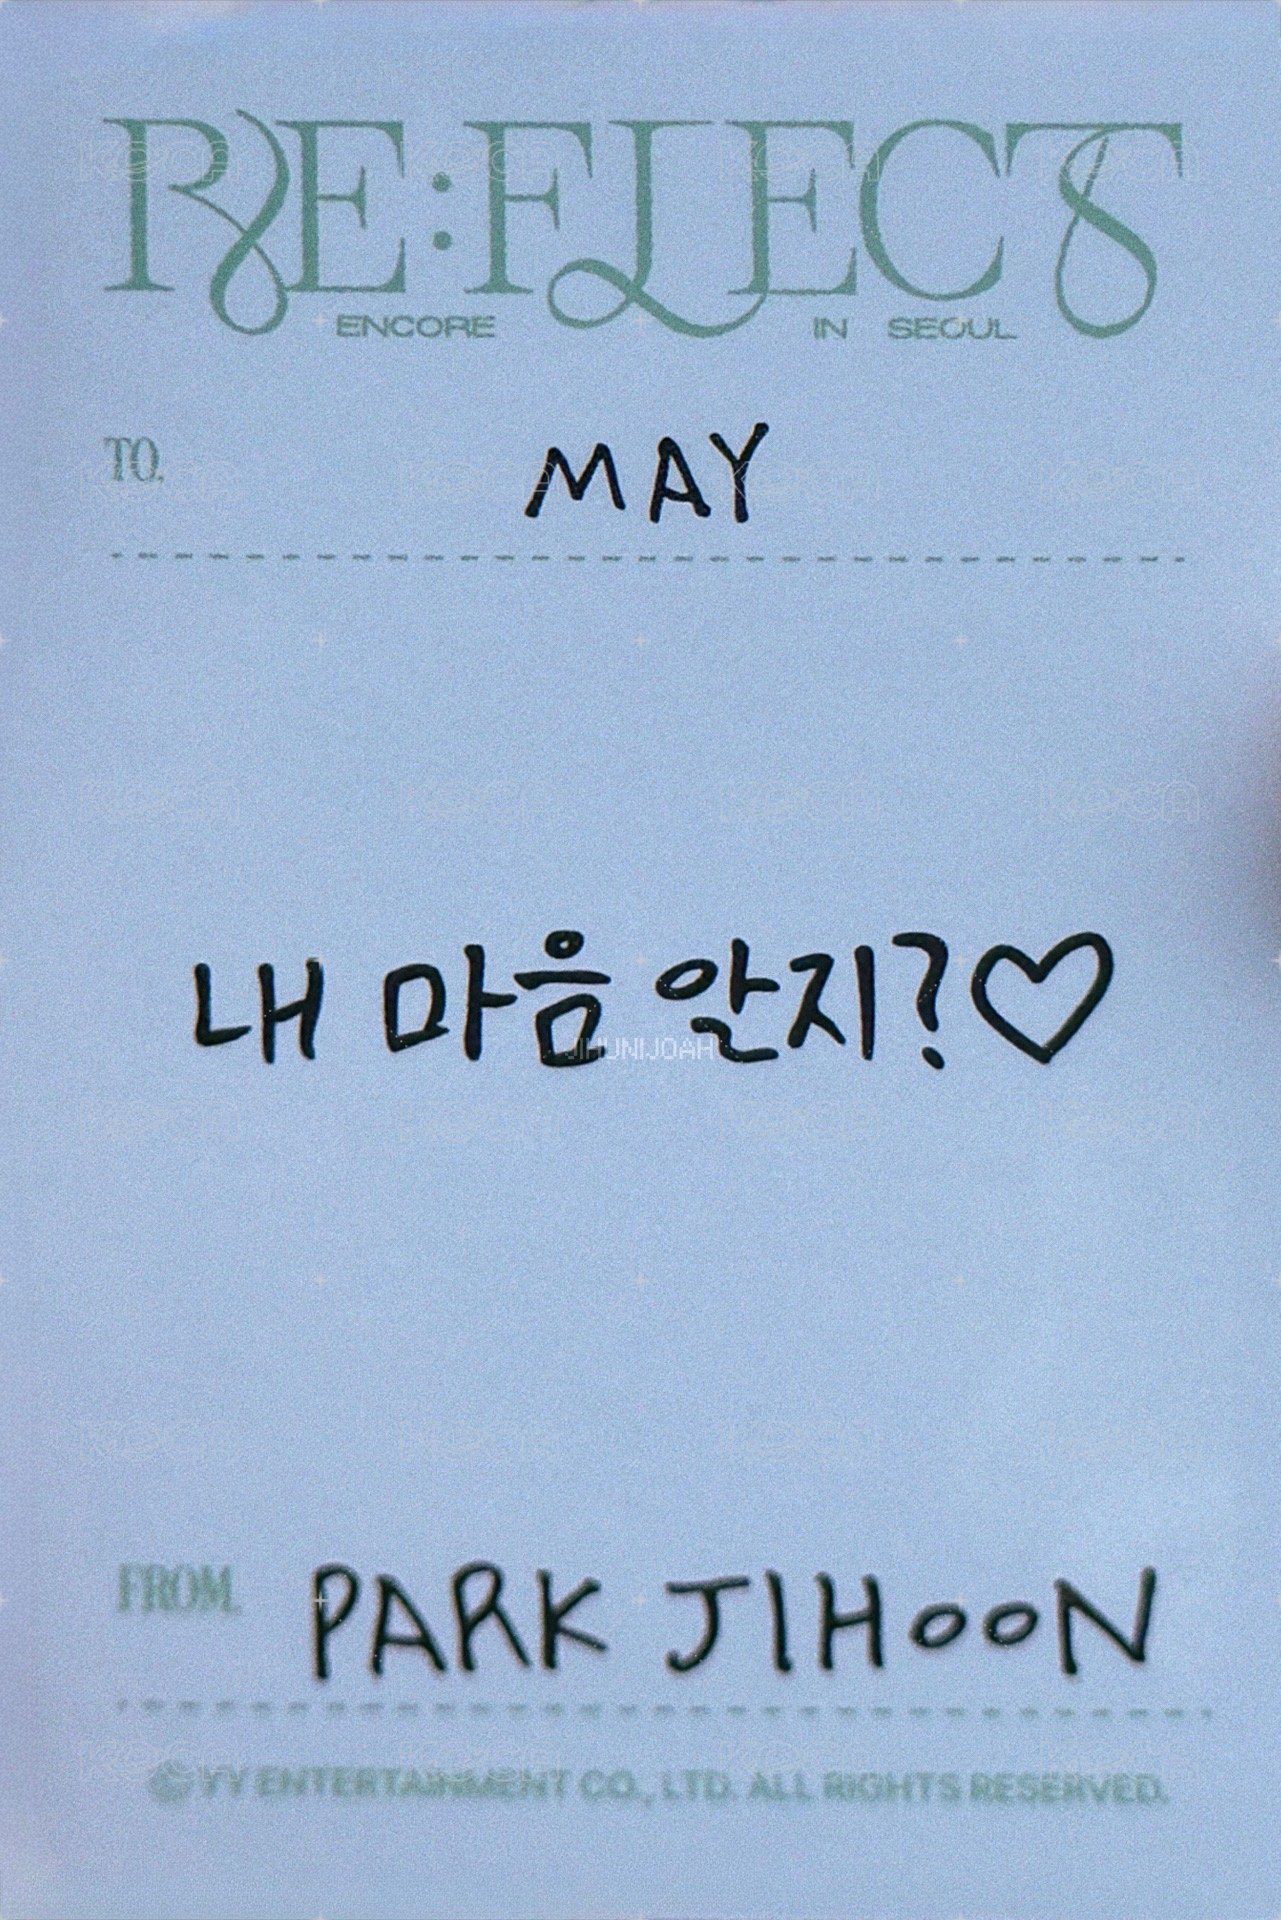 RE:FLECT
ENCORE IN SEOUL
TO. MAY
내 마음 알지?♡
JIHUNIJOAH
FROM. PARK JIHOON
© YY ENTERTAINMENT CO., LTD. ALL RIGHTS RESERVED.